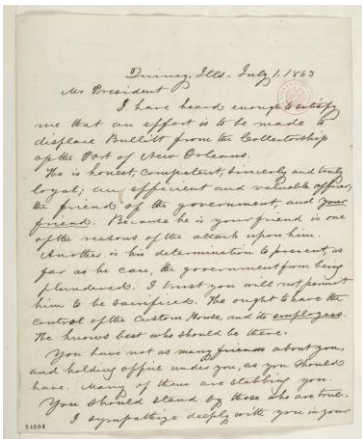 Quincy, Ills. July 1. 1863
Mr President
I have heard enough to satisfy
me that an effort is to be made to
displace Bullitt from the Collectorship
of the Port of New Orleans.
He is honest, competent, sincerely and truly
loyal; an efficient and valuable officer,
the friend of the government, and your
friend. Because he is your friend is one
of the reasons of the attack upon him.
Another is his determination to prevent, as
far as he can, the government from being
plundered. I trust you will not permit
him to be sacrificed. He ought to have the
control of the Custom House, and its employees.
He knows best who should be there.
You have not as many friends about you,
and holding office under you, as you should
have. Many of them are stabbing you.
You should stand by those who are true.
I sympathize deeply with you in your